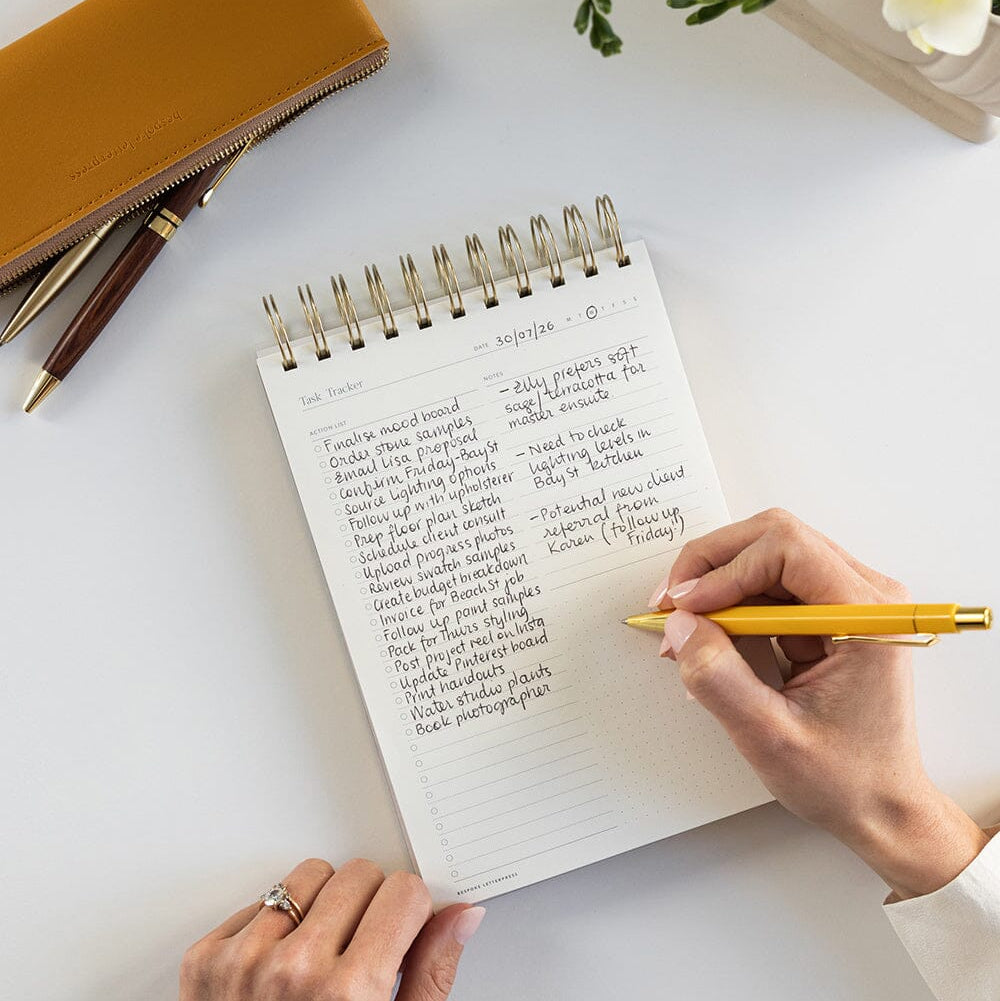 bespoke letterpress
DATE 30/07/26 M T W T F S S
Task Tracker
ACTION LIST
Finalise mood board
Order stone samples
Email Lisa proposal
Confirm Friday-Bay St
Source lighting options
Follow up with upholsterer
Prep floor plan sketch
Schedule client consult
Upload progress photos
Review swatch samples
Create budget breakdown
Invoice for Beach St job
Follow up paint samples
Pack for Thurs styling
Post project reel on Insta
Update Pinterest board
Print handouts
Water studio plants
Book photographer
NOTES
- Elly prefers soft
sage/terracotta for
master ensuite
- Need to check
lighting levels in
Bay St kitchen
- Potential new client
referral from
Karen (follow up
Friday!)
BESPOKE LETTERPRESS